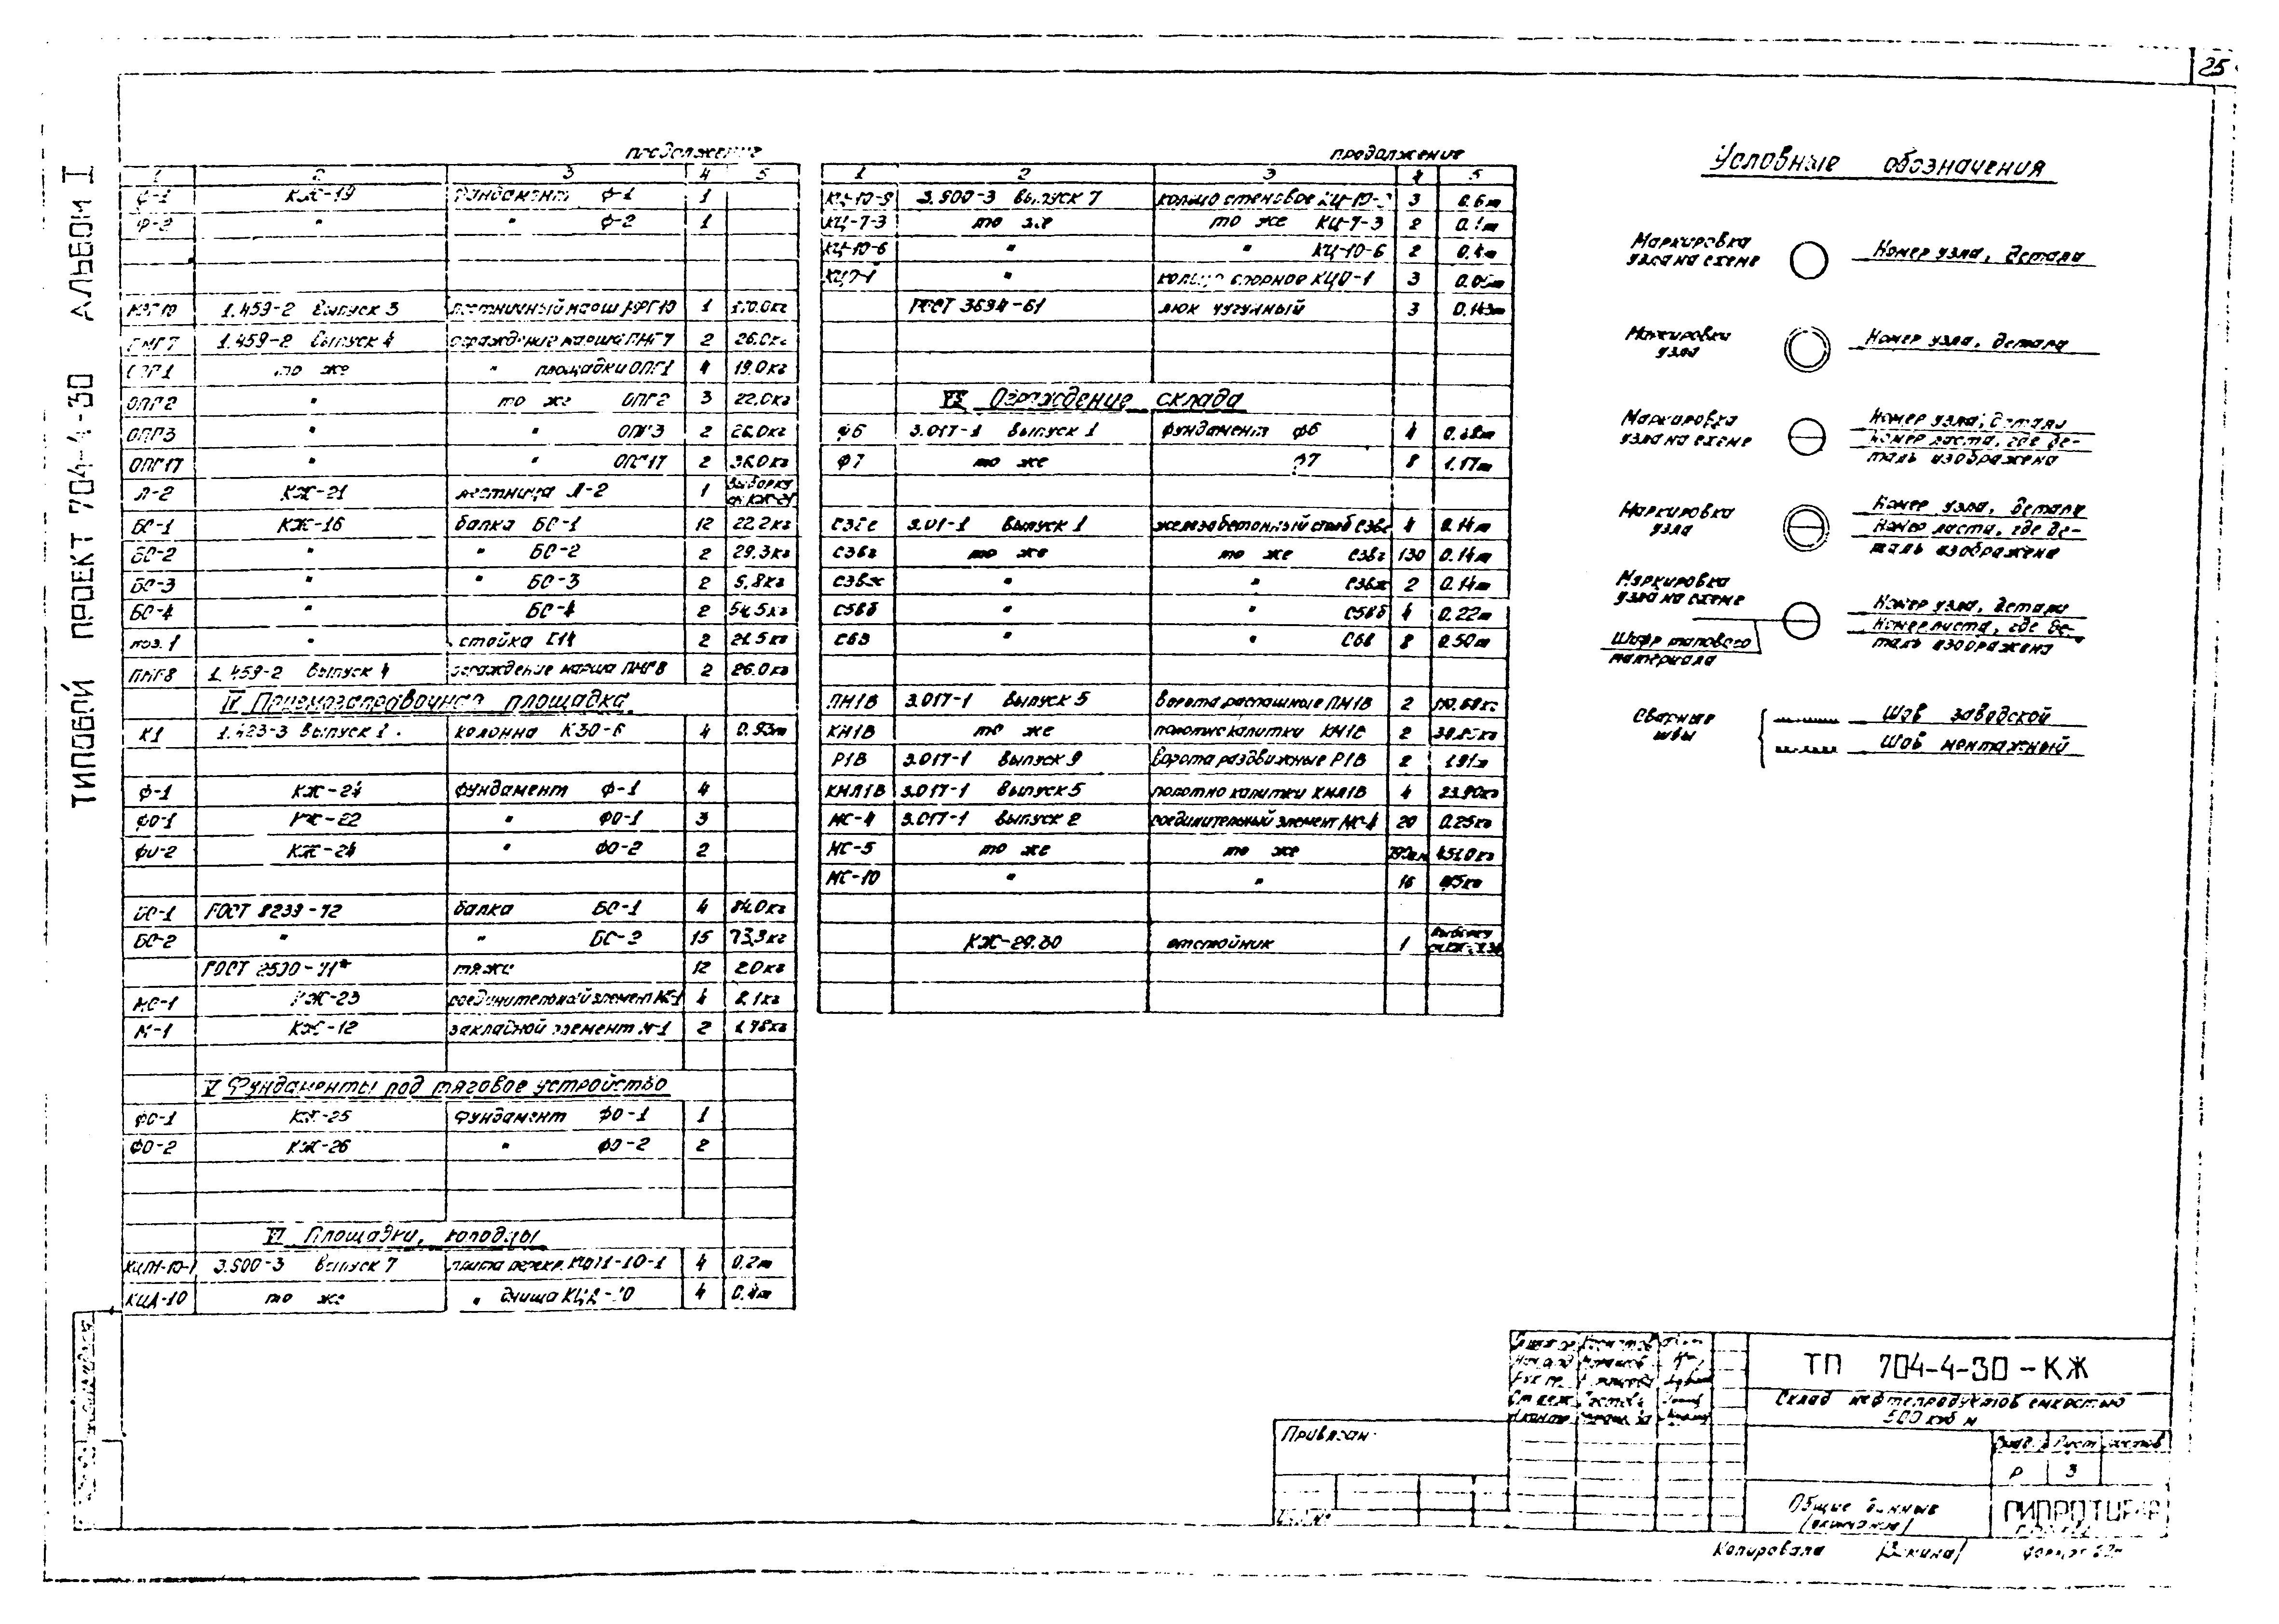 25
ТИПОВОЙ ПРОЕКТ 704-4-30 АЛЬБОМ I
продолжение
1 2 3 4 5
Ф-1 КЖ-19 Фундамент Ф-1 1
Ф-2 " " Ф-2 1
1.459-2 Выпуск 3 лестничный марш 1
1.459-2 Выпуск 4 ограждение марша ПМГ7 2 26.0кг
ОПГ1 то же " площадки ОПГ1 4 19.0кг
ОПГ2 " то же ОПГ2 3 22.0кг
ОПГ3 " " ОПГ3 2 26.0кг
ОПГ17 " " ОПГ17 2 36.0кг
Л-2 КЖ-21 лестница Л-2 1 Выборку
БС-1 КЖ-16 балка БС-1 12 22.2кг
БС-2 " " БС-2 2 29.3кг
БС-3 " " БС-3 2 5.8кг
БС-4 " БС-4 2 54.5кг
поз.1 " стойка 2 21.5кг
ПМГ8 1.459-2 Выпуск 4 ограждение марша ПМГ8 2 26.0кг
IV Приемозаправочная площадка
К1 1.423-3 Выпуск 1 колонна К30-6 4 0.93т
Ф-1 КЖ-24 фундамент Ф-1 4
ФО-1 КЖ-22 " ФО-1 3
ФО-2 КЖ-24 " ФО-2 2
БС-1 ГОСТ 8239-72 балка БС-1 4 84.0кг
БС-2 " " БС-2 15 73.3кг
ГОСТ 2590-71* тяжи 12 2.0кг
МС-1 КЖ-23 соединительный элемент МС-1 4 2.1кг
М-1 КЖ-12 закладной элемент М-1 2 1.78кг
V Фундаменты под тяговое устройство
ФО-1 КЖ-25 Фундамент ФО-1 1
ФО-2 КЖ-26 " ФО-2 2
VI Площадки, колодцы
КЦП1-10-1 3.900-3 Выпуск 7 плита перекр. КЦП1-10-1 4 0.2т
КЦД-10 то же " днища КЦД-10 4 0.4т
продолжение
1 2 3 4 5
КЦ-10-9 3.900-3 Выпуск 7 кольцо стеновое КЦ-10-9 3 0.6т
КЦ-7-3 то же то же КЦ-7-3 2 0.1т
КЦ-10-6 " " КЦ-10-6 2 0.4т
КЦО-1 " кольцо опорное КЦО-1 3
ГОСТ 3634-61 люк чугунный 3 0.143т
VII Ограждение склада
Ф6 3.017-1 Выпуск 1 фундамент Ф6 4
Ф7 то же Ф7 8 1.17т
3.01-1 Выпуск 1 железобетонный столб 4 0.14т
С3вг то же то же С3вг 130 0.14т
С3вж " " С3вж 2 0.14т
С5вб " " С5вб 4 0.22т
С6в " " С6в 8 0.50т
ПМ1В 3.017-1 Выпуск 5 ворота распашные ПМ1В 2
КМ1В то же полотно калитки КМ1В 2
Р1В 3.017-1 Выпуск 9 ворота раздвижные Р1В 2 1.91т
КМЛ1В 3.017-1 Выпуск 5 полотно калитки КМЛ1В 4 23.90кг
МС-4 3.017-1 Выпуск 2 соединительный элемент МС-4 20 0.25кг
МС-5 то же то же 451.0кг
МС-10 " " 16
КЖ-29.30 отстойник 1 Выборку
Условные обозначения
Маркировка
узла на схеме
Номер узла, детали
Маркировка
узла
Номер узла, детали
Маркировка
узла на схеме
Номер узла, детали
Номер листа, где де-
таль изображена
Маркировка
узла
Номер узла, детали
Номер листа, где де-
таль изображена
Маркировка
узла на схеме
Шифр типового
материала
Номер узла, детали
Номер листа, где де-
таль изображена
Сварные
швы
Шов заводской
Шов монтажный
Привязан
ТП 704-4-30-КЖ
Склад нефтепродуктов емкостью
500 куб м
Лист
Р 3
Общие данные
(окончание)
Копировала